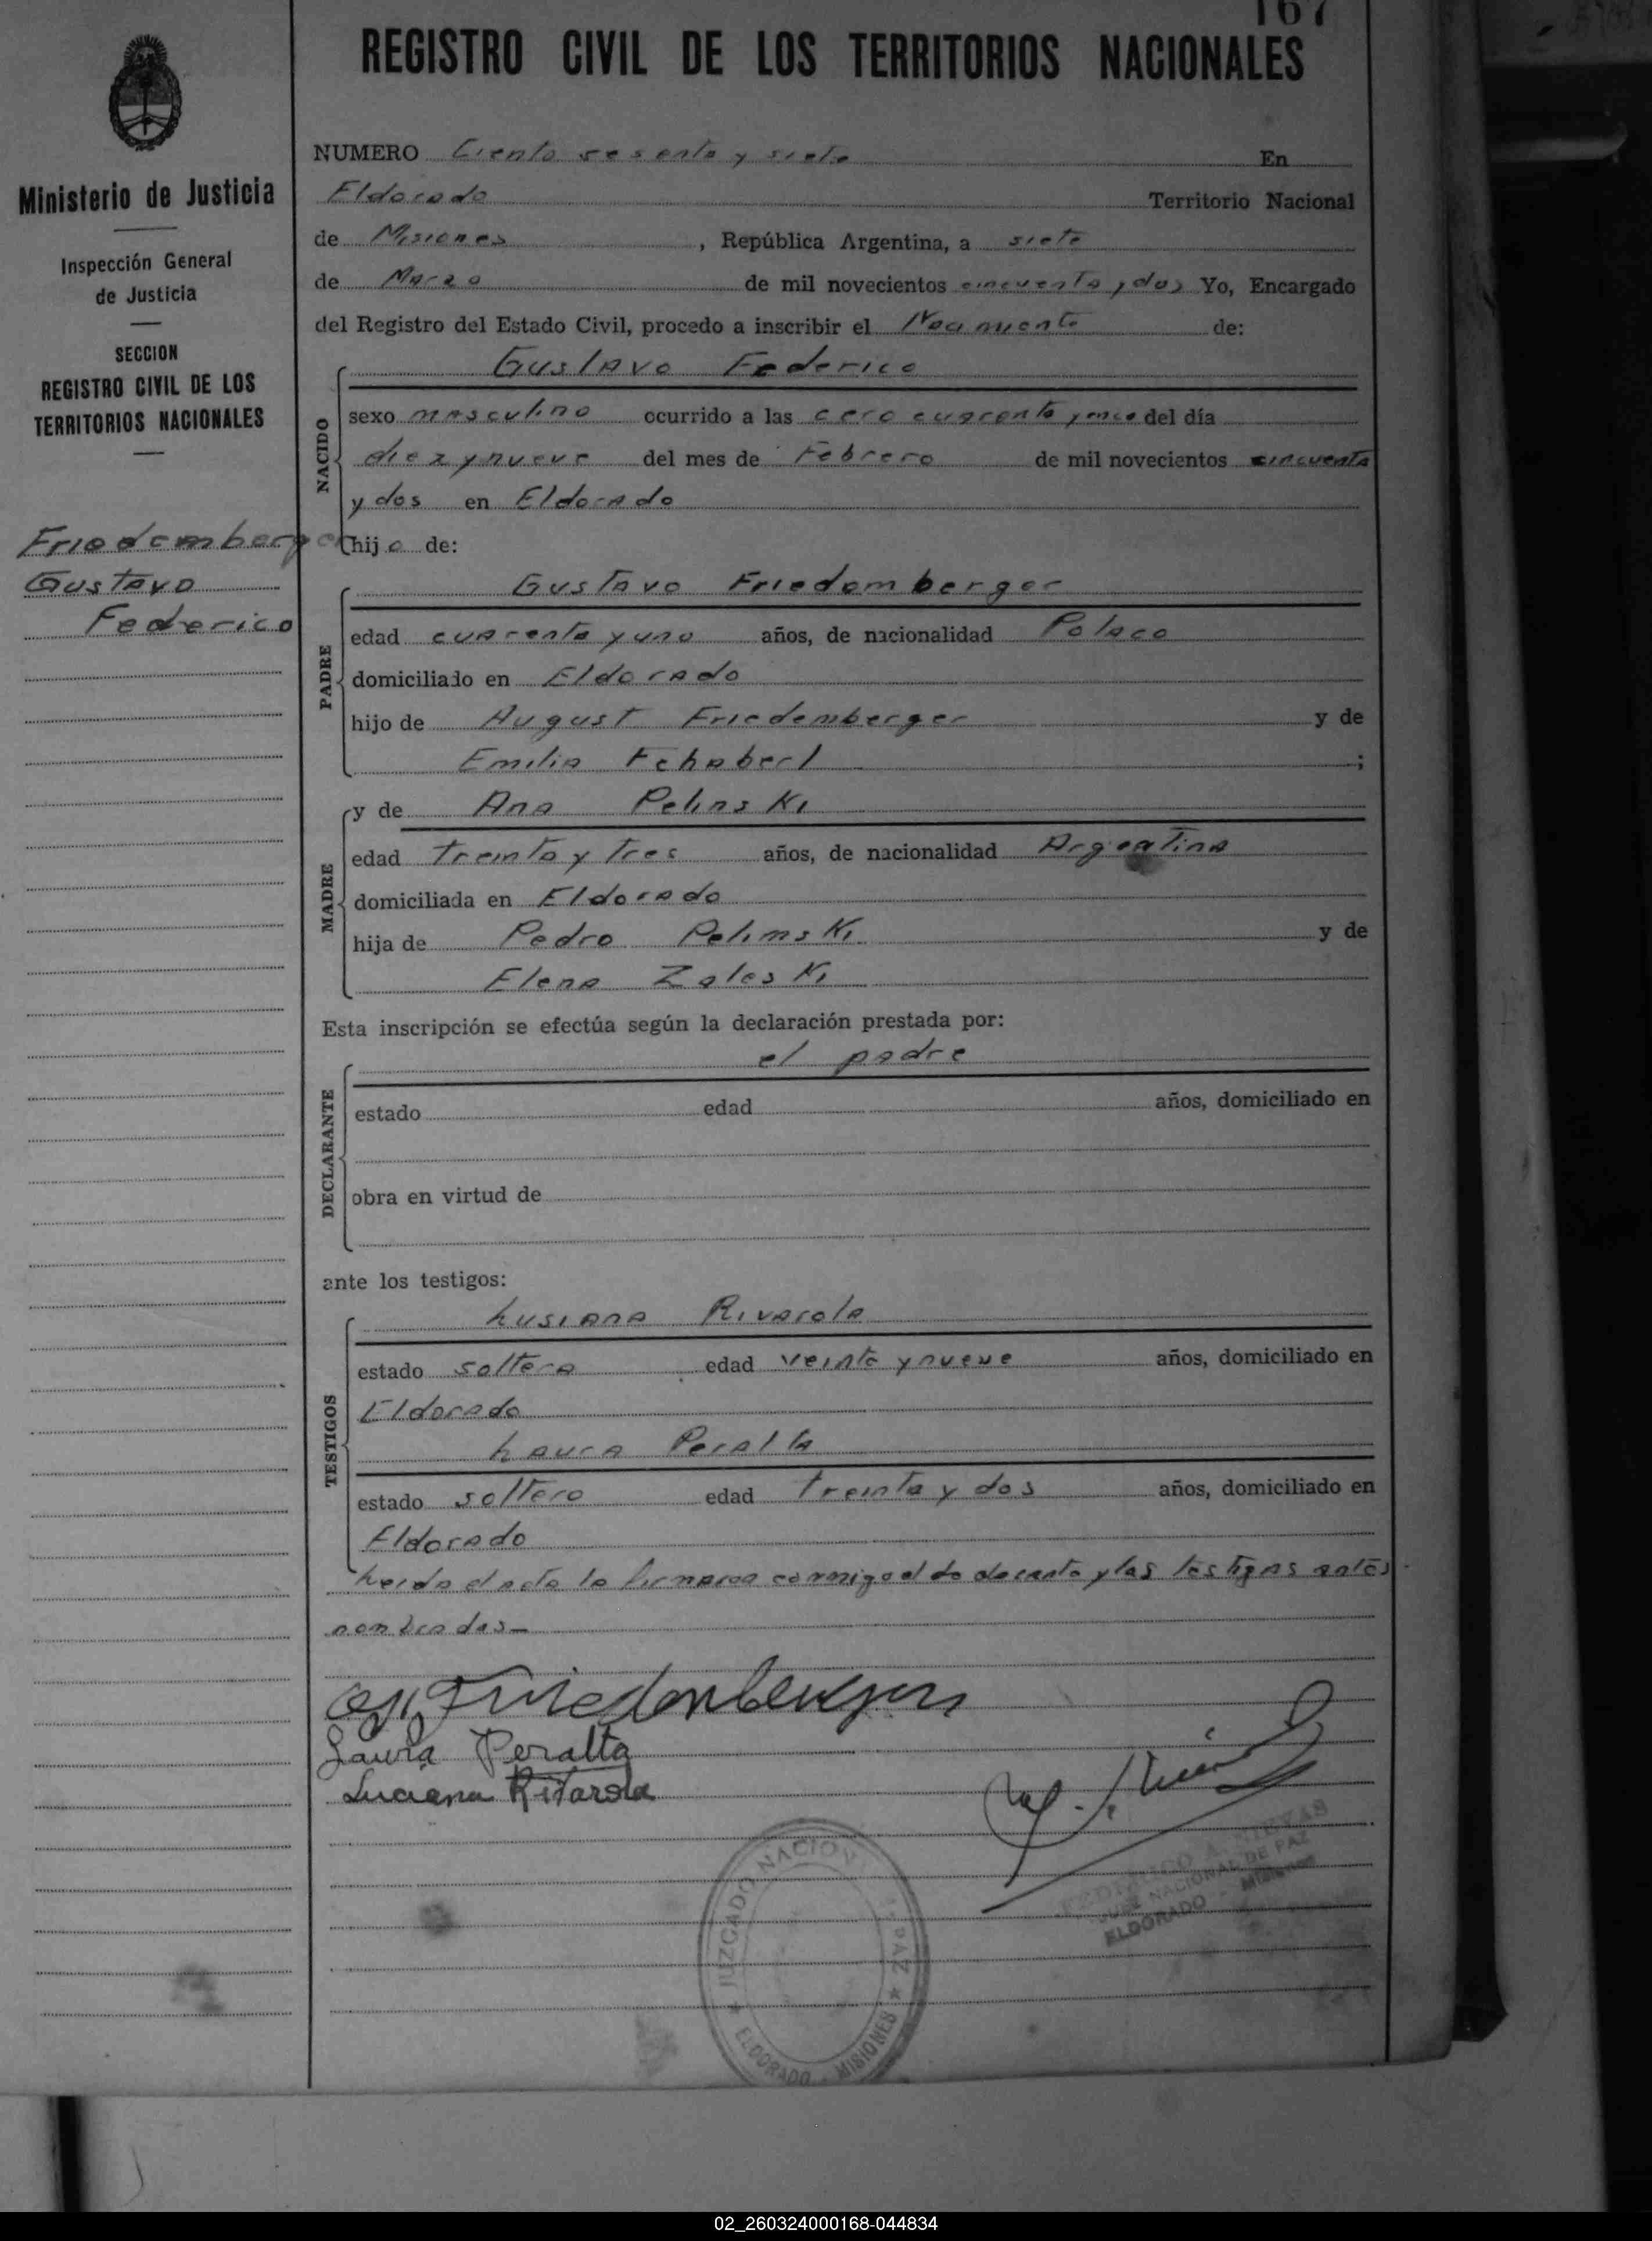 167
REGISTRO CIVIL DE LOS TERRITORIOS NACIONALES
Ministerio de Justicia
Inspección General
de Justicia
SECCION
REGISTRO CIVIL DE LOS
TERRITORIOS NACIONALES
Friedemberger
Gustavo
Federico
NUMERO Ciento sesenta y siete En
Eldorado Territorio Nacional
de Misiones, República Argentina, a siete
de Marzo de mil novecientos cincuenta y dos Yo, Encargado
del Registro del Estado Civil, procedo a inscribir el Nacimiento de:
NACIDO
Gustavo Federico
sexo masculino ocurrido a las cero cuarenta y cinco del día
diez y nueve del mes de Febrero de mil novecientos cincuenta
y dos en Eldorado
hijo de:
PADRE
Gustavo Friedemberger
edad cuarenta y uno años, de nacionalidad Polaco
domiciliado en Eldorado
hijo de August Friedemberger y de
Emilia Fchaberl;
MADRE
y de Ana Pelinski
edad treinta y tres años, de nacionalidad Argentina
domiciliada en Eldorado
hija de Pedro Pelinski y de
Elena Zaleski
Esta inscripción se efectúa según la declaración prestada por:
DECLARANTE
el padre
estado edad años, domiciliado en
obra en virtud de
ante los testigos:
TESTIGOS
Lusiana Rivarola
estado soltera edad veinte y nueve años, domiciliado en
Eldorado
Laura Peralta
estado soltero edad treinta y dos años, domiciliado en
Eldorado
Leida el acta la firmaron conmigo el declarante y las testigos antes
nombradas—
Friedenberger
Laura Peralta
Luciana Rivarola
JUZGADO NACION PAZ
ELDORADO - MISIONES
JUEZ NACIONAL DE PAZ
ELDORADO - Misiones
02_260324000168-044834